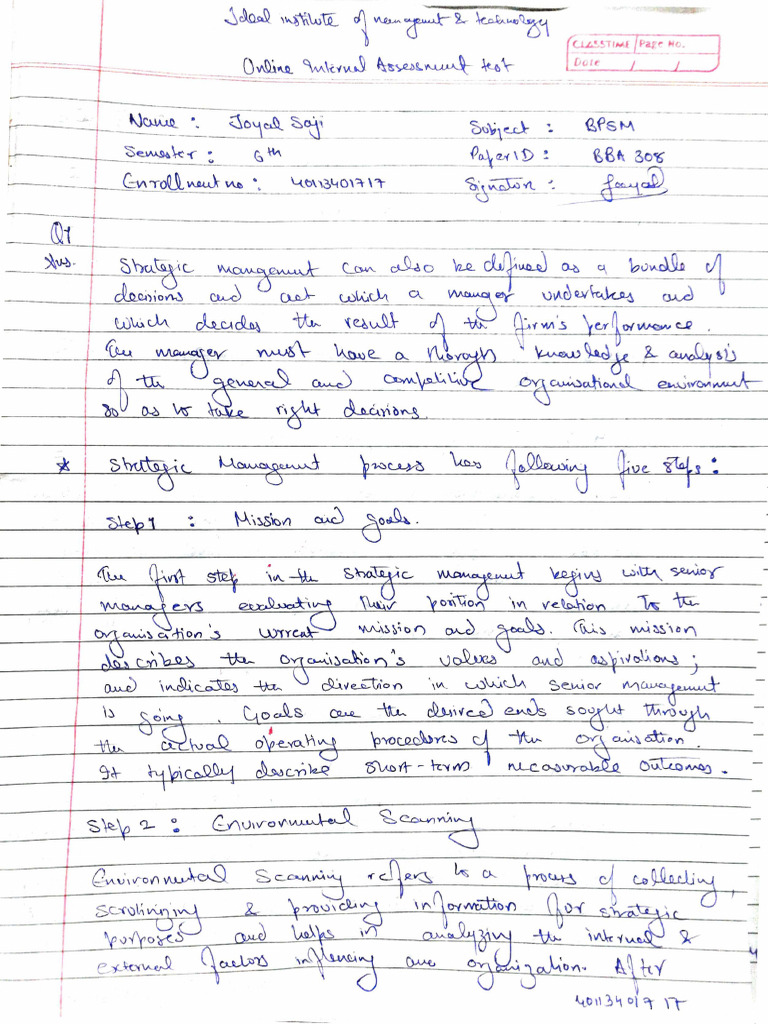 Ideal institute of management & technology
CLASSTIME Page No.
Date / /
Online Internal Assessment test
Name : Joyal Saji Subject : BPSM
Semester : 6th Paper ID : BBA 308
Enrollment no : 40113401717 Signature : Joyal
Q1
Ans. Strategic mangement can also be defined as a bundle of
decisions and act which a manger undertakes and
which decides the result of the firm's performance.
The manager must have a thorogh knowledge & analysis
of the general and competitive organisational environment
so as to take right decisions.
* Strategic Management process has following five steps :
Step 1 : Mission and goals.
The first step in the strategic management begins with senior
managers evaluating their position in relation to the
organisation's current mission and goals. This mission
describes the organisation's values and aspirations ;
and indicates the direction in which senior management
is going. Goals are the desired ends sought through
the actual operating procedures of the organisation.
It typically describe short-term measurable outcomes.
Step 2 : Environmental Scanning
Environmental Scanning refers to a process of collecting,
scrutinizing & providing information for strategic
purposes and helps in analyzing the internal &
external factors influencing an organization. After
40113401717